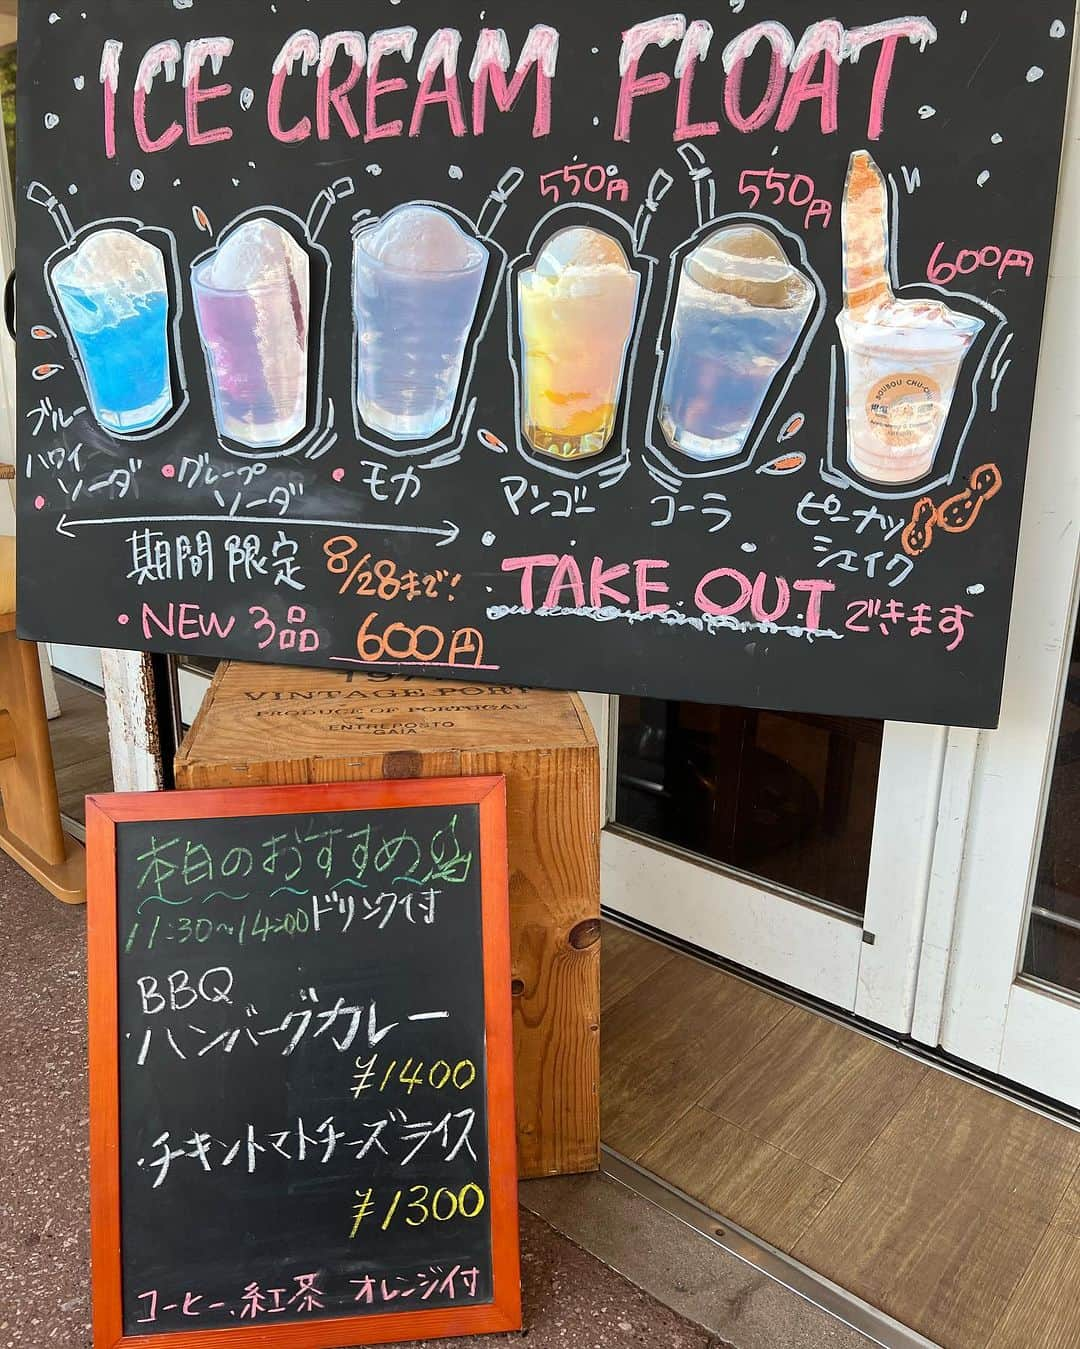 ICE CREAM FLOAT
550円
550円
600円
ブルー
ハワイ
ソーダ
グレープ
ソーダ
モカ
マンゴー
コーラ
ピーナッツ
シェイク
BOUSOU CHU-CHU
期間限定 8/28まで!
・NEW 3品 600円
TAKE OUT できます
VINTAGE PORT
PRODUCE OF PORTUGAL
ENTREPOSTO
GAIA
本日のおすすめ
11:30~14:00 ドリンク付
BBQ
・ハンバーグカレー
¥1400
・チキントマトチーズライス
¥1300
コーヒー、紅茶 オレンジ付